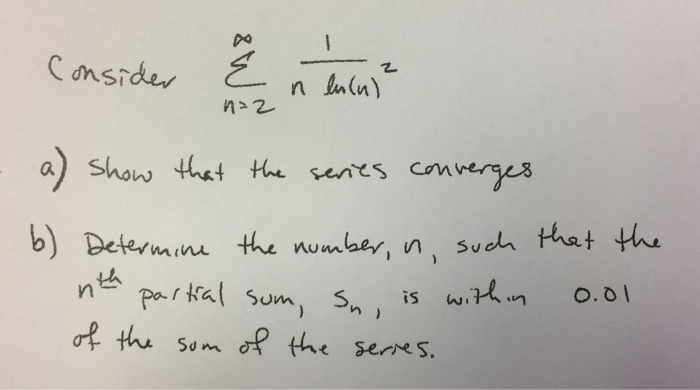 Consider ∞ Σ n=2 1 / n ln(n)²
a) Show that the series converges
b) Determine the number, n, such that the
nth partial sum, Sn, is within 0.01
of the sum of the series.